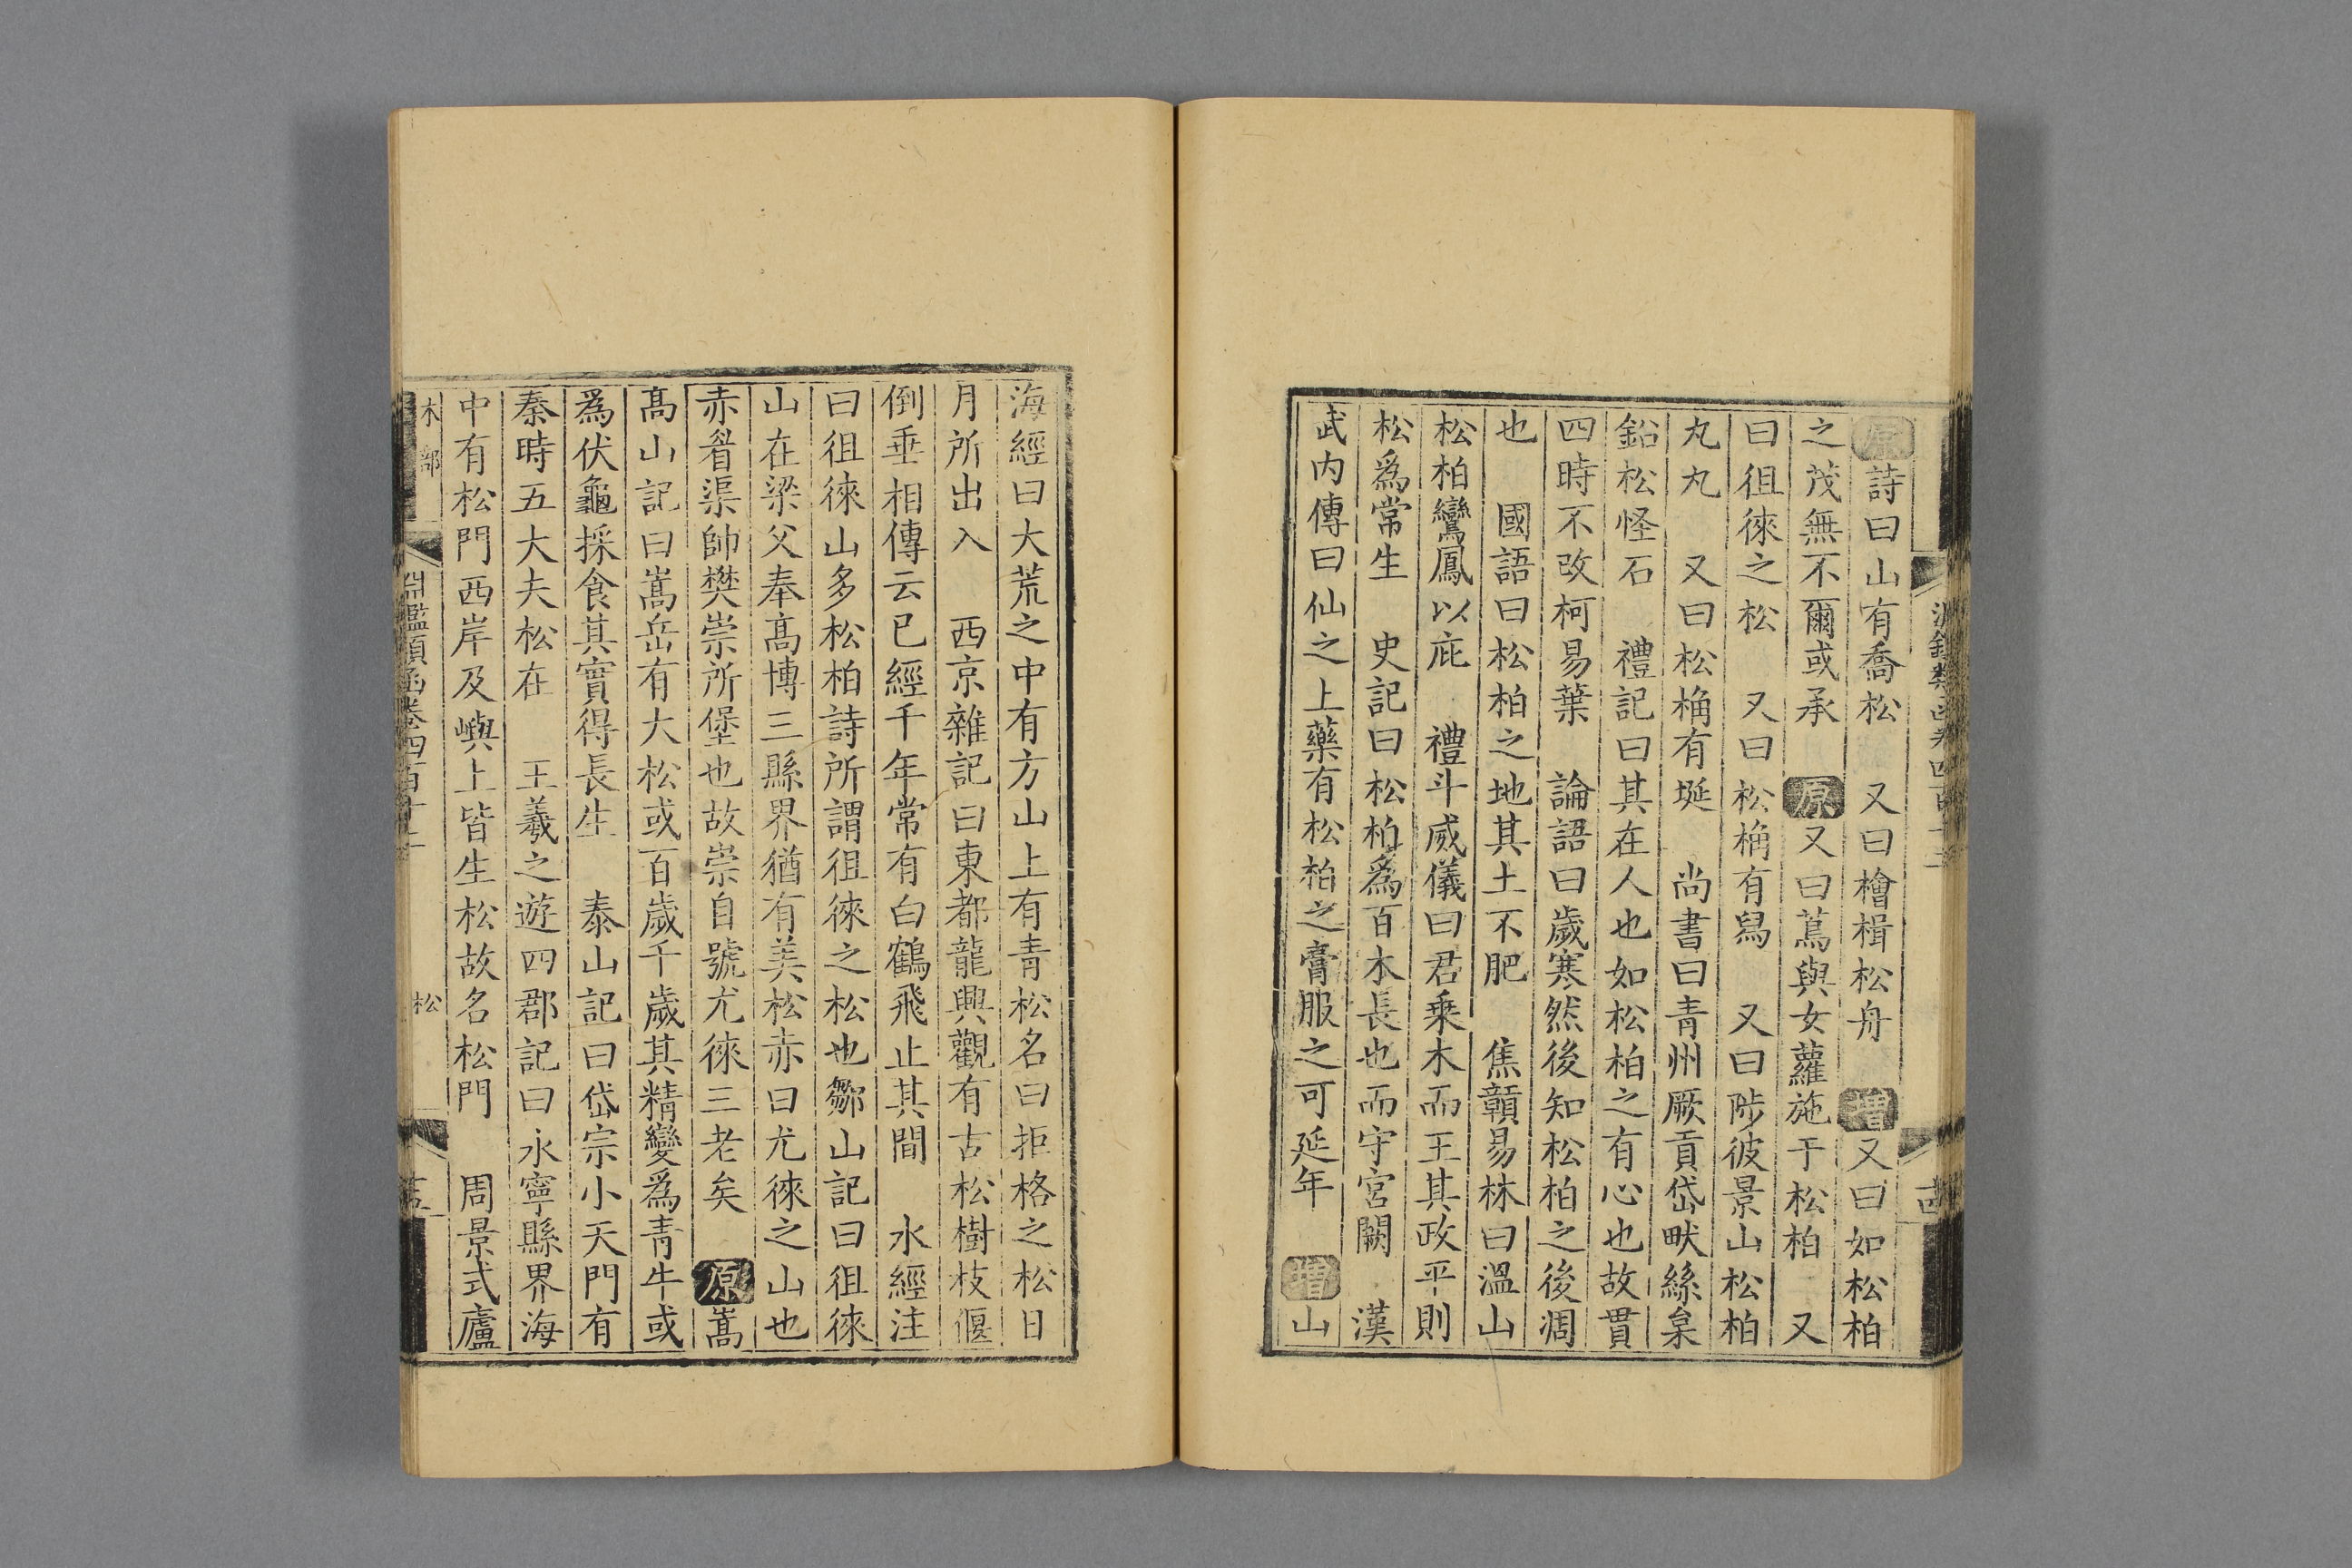 原詩曰山有喬松　又曰檜楫松舟　增又曰如松柏
之茂無不爾或承　原又曰蔦與女蘿施于松柏　又
曰徂徠之松　又曰松桷有舄　又曰陟彼景山松柏
丸丸　又曰松桷有梴　尚書曰青州厥貢岱畎絲枲
鉛松怪石　禮記曰其在人也如松柏之有心也故貫
四時不改柯易葉　論語曰歲寒然後知松柏之後凋
也　國語曰松柏之地其土不肥　焦贛易林曰溫山
松柏鸞鳳以庇　禮斗威儀曰君乗木而王其政平則
松爲常生　史記曰松柏爲百木長也而守宮闕　漢
武内傳曰仙之上藥有松柏之膏服之可延年　增山
海經曰大荒之中有方山上有青松名曰拒格之松日
月所出入　西京雜記曰東都龍興觀有古松樹枝偃
倒垂相傳云已經千年常有白鶴飛止其間　水經注
曰徂徠山多松柏詩所謂徂徠之松也鄒山記曰徂徠
山在梁父奉髙博三縣界猶有美松亦曰尤徠之山也
赤眉渠帥樊崇所堡也故崇自號尤徠三老矣　原嵩
髙山記曰嵩岳有大松或百歲千歲其精變爲青牛或
爲伏龜採食其實得長生　泰山記曰岱宗小天門有
秦時五大夫松在　王羲之遊四郡記曰永寧縣界海
中有松門西岸及嶼上皆生松故名松門　周景式廬
木部
淵鑑類函卷四百十二
松